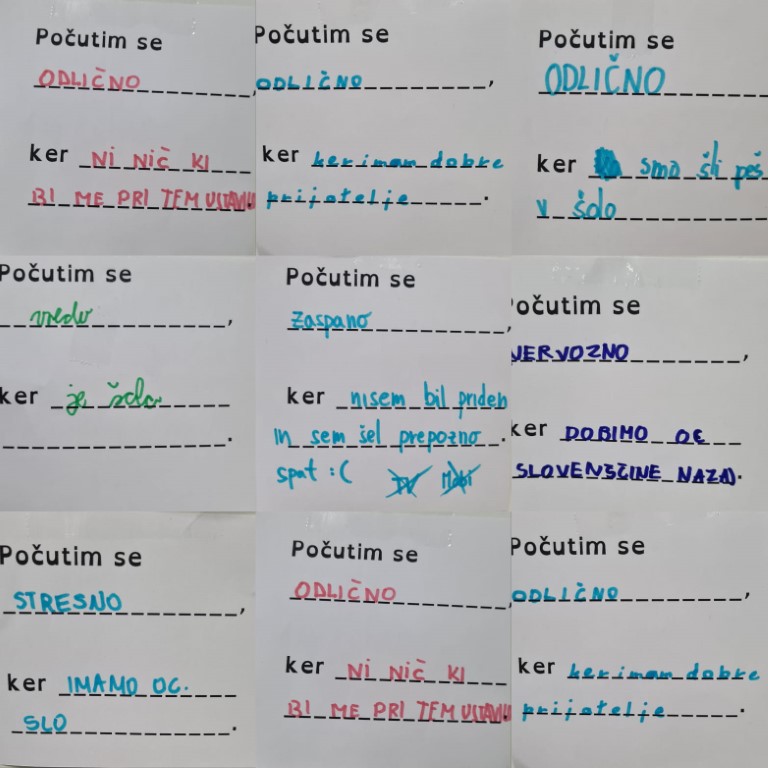 Počutim se
ODLIČNO,
ker NI NIČ KI
BI ME PRI TEM USTAVILO.
Počutim se
ODLIČNO,
ker ker iman dobre
prijatelje.
Počutim se
ODLIČNO
ker smo šli peš
v šolo
Počutim se
vredu,
ker je šola
.
Počutim se
zaspano,
ker nisem bil priden
in sem šel prepozno.
spat :(
Počutim se
NERVOZNO,
ker DOBIMO OC
SLOVENŠČINE NAZAJ.
Počutim se
STRESNO,
ker IMAMO OC.
SLO.
Počutim se
ODLIČNO,
ker NI NIČ KI
BI ME PRI TEM
Počutim se
ODLIČNO,
ker ker iman dobre
prijatelje.